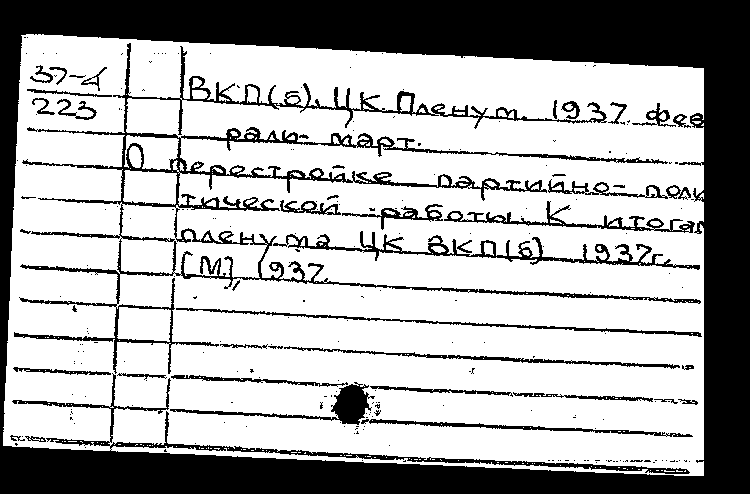 37-4
223
ВКП(б). ЦК. Пленум. 1937 фев
раль-март.
О перестройке партийно-поли
тической работы. К итогам
пленума ЦК ВКП(б) 1937г.
[М], 1937.